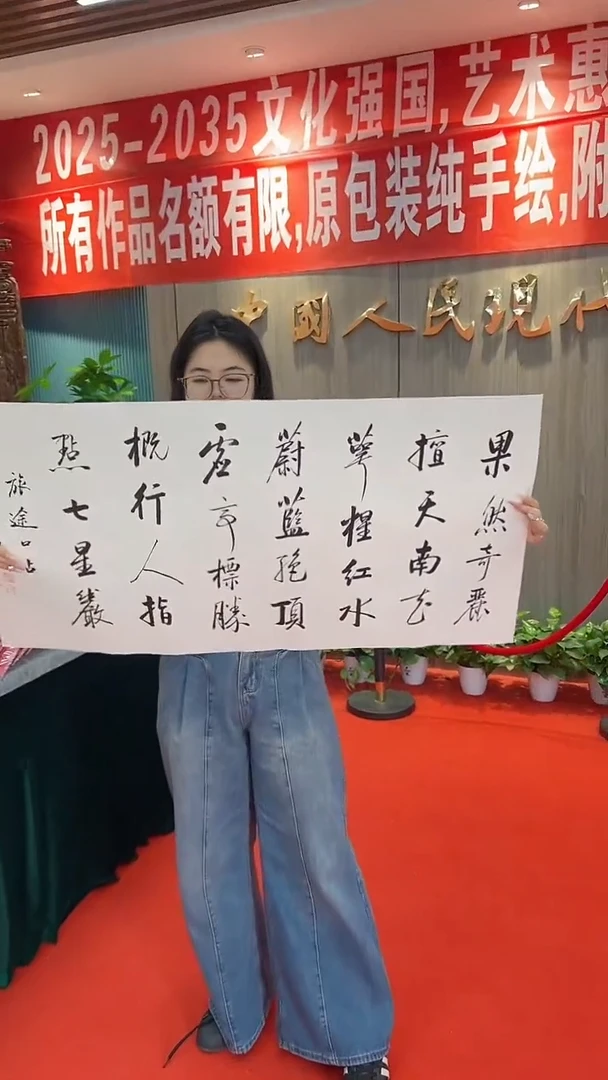 2025-2035文化强国,艺术惠
所有作品名额有限,原包装纯手绘,附
中國人民現代
果然奇麗
擅天南花
萼猩紅水
蔚藍絕頂
虛亭標勝
概行人指
點七星巖
旅途口占